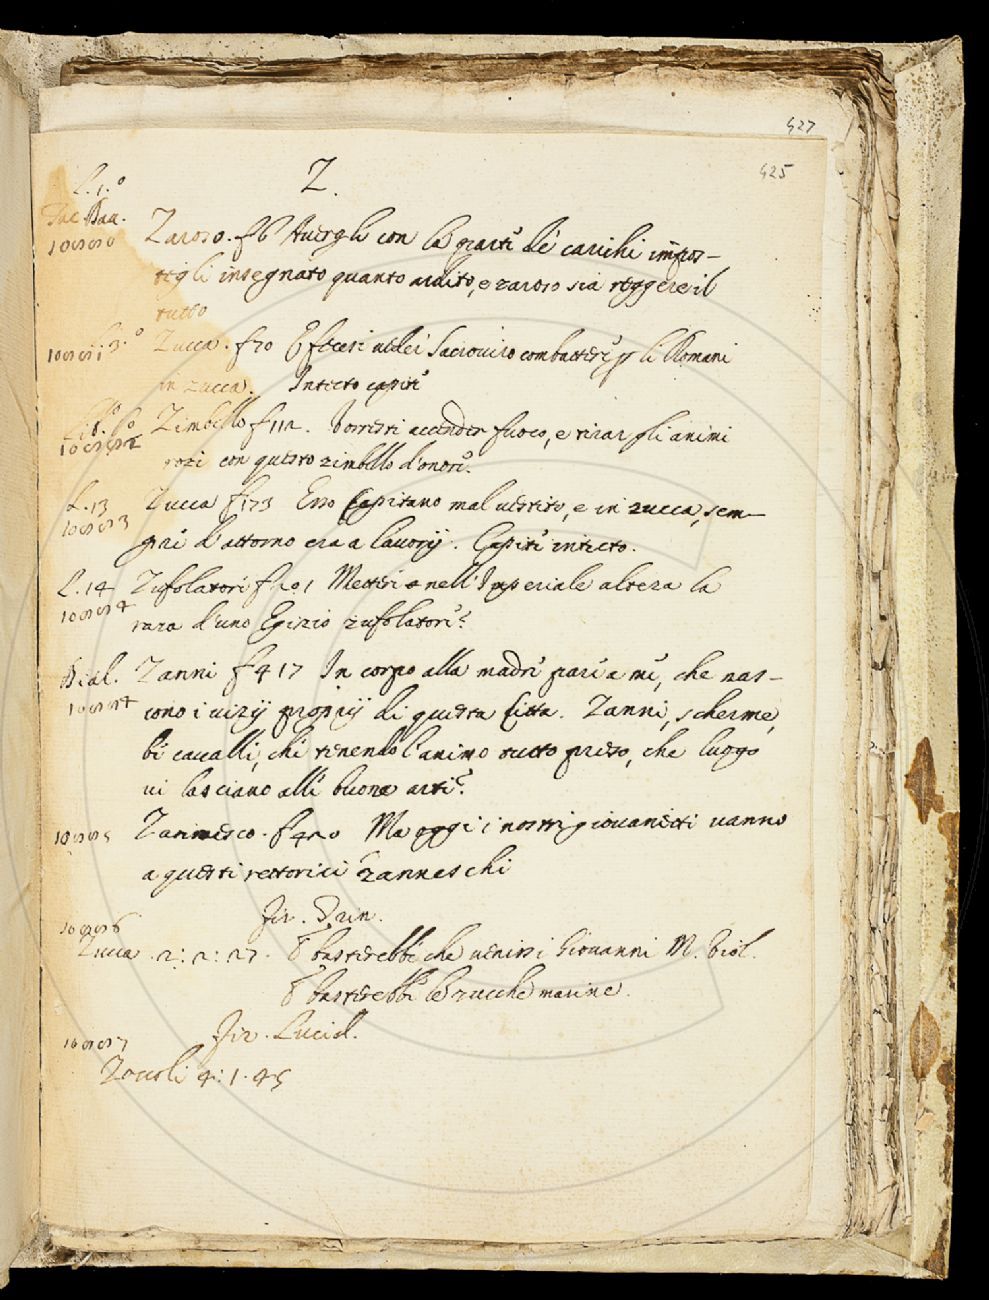 427
425
Z.
L. 1.º
Tac Dau. Zaroso. f 6 Avergli con la pratt de' carichi impos-
tigli insegnato quanto ardito, e zaroso sia reggere il
tutto
Zucca. f 70 Effecesi veder Sacroviro combattere p li Romani
in zucca. Intecto capite
Zimbello f 112. Vorresti accender fuoco, e tirar gli animi
rozi con questo zimbello d'onore.
L. 13 Zucca f 173 Ero Capitano mal vestito, e in zucca, sem-
pre d'attorno era a lavorij. Capite intecto.
L. 14 Zufolatori f 201 Mettere nell'Imperiale alteza la
raza d'uno Egizio zufolatore?
Dial. Zanni f 417 In corpo alla madre pare a me, che nas-
cono i vizij proprij di questa Citta. Zanni, scherme,
bei cavalli, chi tenendo l'animo tutto preso, che luogo
vi lasciano alle buone arti?
Zannesco. f 420 Ma oggi i nostri giovanetti vanno
a questi rettorici zanneschi
Fir. Trin.
Zucca. 2: 2: 27. E' basterebbe che venissi Giovanni M. Piol.
E' basterebbe le zucche marine.
Fir. Lucid.
Zoccoli 4: 1. 45